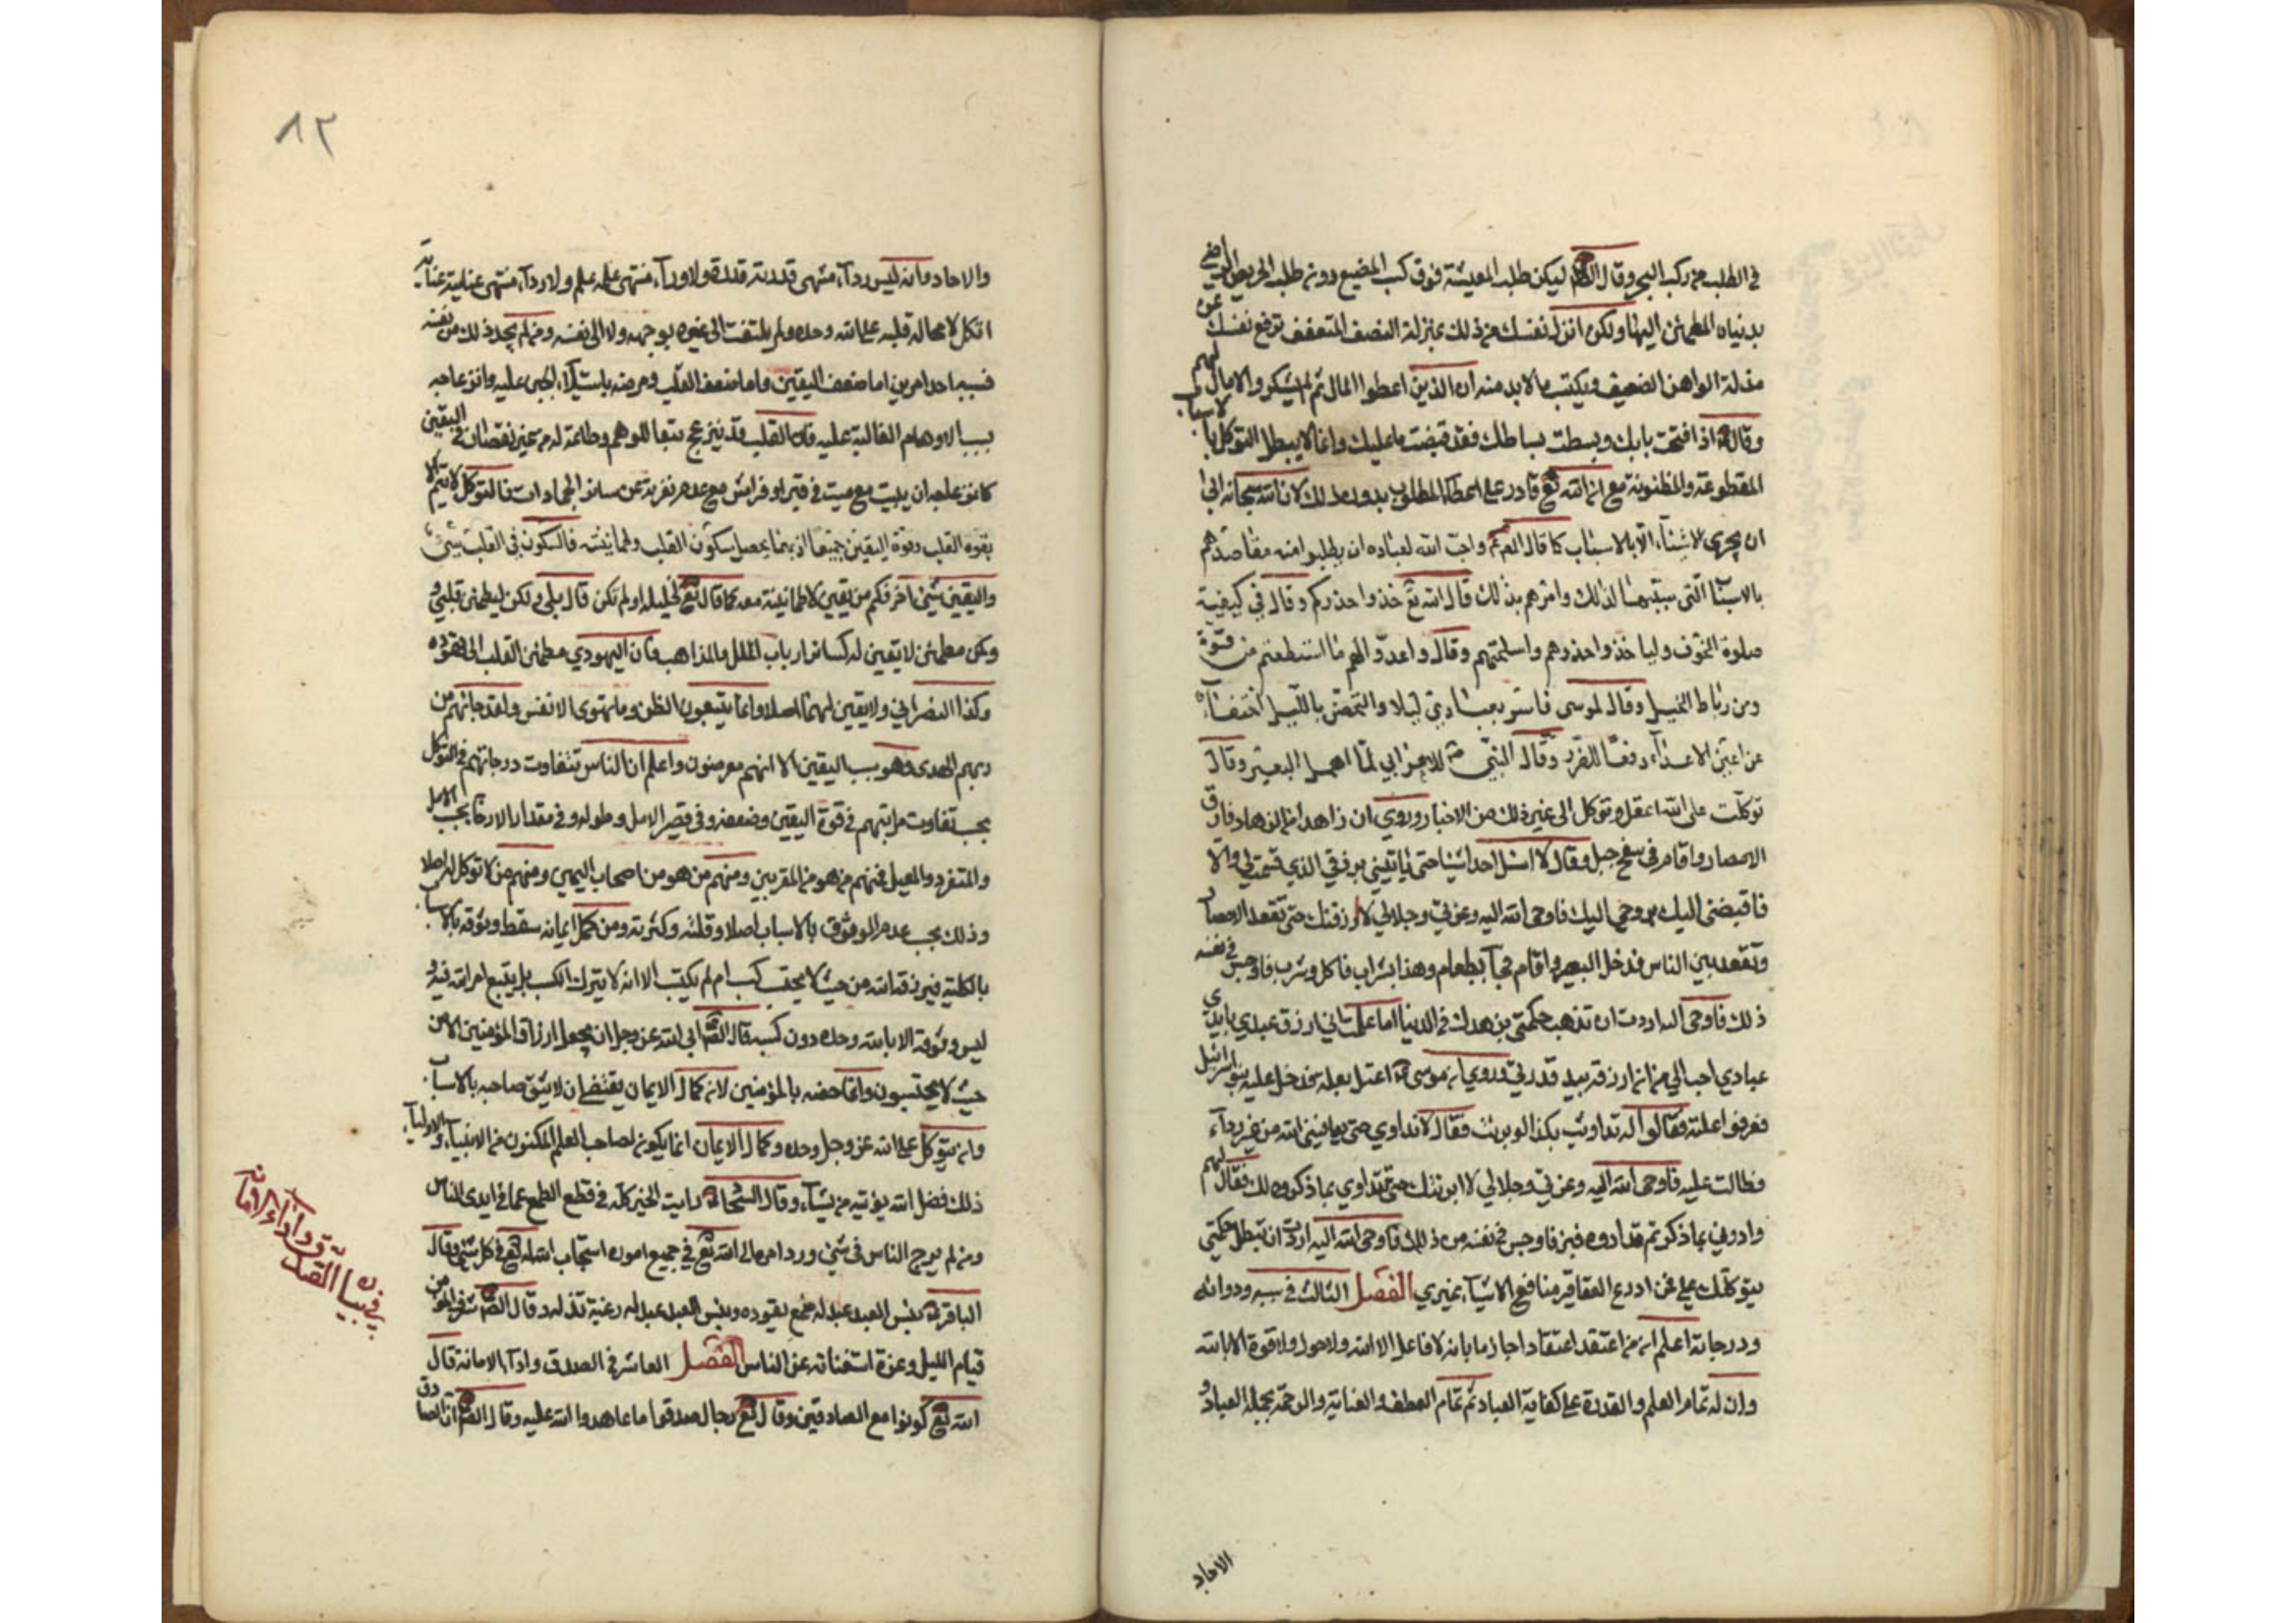 في الطلب من ركب البحر وقال الكاظم ليكن طلب المعيشة فوق كسب المضيع دون طلب الحريص الراضي
بدنياه المطمئن اليها ولكن انزل نفسك من ذلك بمنزلة النصف المتعفف ترفع نفسك عن
منزلة الواهن الضعيف ويكتب ما لا بد منه ان الذين اعطوا المال ثم لم يشكروا لا مال لهم
وقال ع اذا فتحت بابك وبسطت بساطك فقد قضيت ما عليك وانما لا يبطل التوكل بالاسباب
المقطوعة والمظنونة مع ان الله تع قادر على اعطاء المطلوب بدون ذلك لان الله سبحانه ابى
ان يجري الاشياء الا بالاسباب كما قال الصم واحب الله لعباده ان يطلبوا منه مقاصدهم
بالاسباب التي سببها لذلك وامرهم بذلك قال الله تع خذوا حذركم وقال في كيفية
صلوة الخوف ولياخذوا حذرهم واسلحتهم وقال واعدوا لهم ما استطعتم من قوة
ومن رباط الخيل وقال لموسى فاسر بعبادي ليلا والتحصن بالليل اختفاء
عن اعين الاعداء دفعا للضرر وقال النبي ص للاعرابي لما اهمل البعير وقال
توكلت على الله اعقل وتوكل الى غير ذلك من الاخبار وروي ان زاهدا من الزهاد فارق
الامصار واقام في سفح جبل وقال لا اسئل احدا شيئا حتى ياتيني برزقي الذي قسمت لي والا
فاقبضني اليك فاوحى الله اليه وعزتي وجلالي لا ارزقنك حتى تقعد الامصار
وتقعد بين الناس فدخل البصر واقام فجآء بطعام وهذا بشراب فاكل وشرب فاوجس في نفسه
ذلك فاوحى اليه اردت ان تذهب حكمتي بزهدك في الدنيا اما علمت اني ارزق عبدي بايدي
عبادي احب الي من ان ارزقه بيد قدرتي وروي ان موسى ع اعتل بعلة فدخل عليه بنو اسرائيل
فعرفوا علته فقالوا له تداويت بكذا لوبرئت فقال لا تداوي حتى يعافيني الله من غير دوآء
فطالت عليه فاوحى الله اليه وعزتي وجلالي لا ابرئك حتى تتداوي بما ذكروه لك فقال لهم
داووني بما ذكرتم فداووه فبرء فاوجس في نفسه من ذلك فاوحى الله اليه اردت ان تبطل حكمتي
بتوكلك علي فمن اودع العقاقير منافع الاشياء غيري الفصل الثالث في سببه ودوائه
ودرجاته اعلم ان من اعتقد اعتقادا جازما بانه لا فاعل الا الله ولا حول ولا قوة الا بالله
وان له تمام العلم والقدرة على كفاية العباد ثم تمام العطف والعناية والرحمة بجملة العباد و
الاحاد
٨٢
والاحاد وانه ليس ورآء منتهى قدرته قدرة ولا ورآء منتهى علمه علم ولا ورآء منتهى عنايته عناية
اتكل لا محالة قلبه على الله وحده ولم يلتفت الى غيره بوجه ولا الى نفسه ومن لم يجد ذلك من نفسه
فسببه احد امرين اما ضعف اليقين واما ضعف القلب ومرضه باستيلاء الجبن عليه وانزعاجه
بسبب الاوهام الغالبة عليه فان القلب قد ينزعج تبعا للوهم وطاعة له من غير نقصان في اليقين
كانزعاجه ان يبيت مع ميت في قبر او فراش مع عدم نفرته عن سائر الجمادات فالتوكل لا يتم الا
بقوة القلب وقوة اليقين جميعا اذ بهما يحصل سكون القلب وطمانينته فالسكون في القلب شيء
واليقين شيء اخر فكم من يقين لا طمانينة معه كما قال تع لخليله اولم تؤمن قال بلى ولكن ليطمئن قلبي و
وكم من مطمئن لا يقين له كسائر ارباب الملل والمذاهب فان اليهودي مطمئن القلب الى تهوده
وكذا النصراني ولا يقين لهما اصلا وانما يتبعون الظن وما تهوى الانفس ولقد جائهم من
ربهم الهدى وهو سبب اليقين الا انهم معرضون واعلم ان الناس تتفاوت درجاتهم في التوكل
بحسب تفاوت مراتبهم في قوة اليقين وضعفه وفي قصر الامل وطوله وفي مقدار الادخار بحسب الامل
والمتفرد والمعيل فمنهم من هو من المقربين ومنهم من هو من اصحاب اليمين ومنهم من لا توكل له اصلا
وذلك بحسب عدم الوثوق بالاسباب اصلا وقلته وكثرته ومن كمل ايمانه سقط وثوقه بالاسباب
بالكلية فيرزقه الله من حيث لا يحتسب كسب ام لم يكتسب الا انه لا يترك الكسب بل يتبع امر الله فيه و
ليس وثوقه الا بالله وحده دون كسبه قال الصم ابى الله عز وجل ان يجعل ارزاق المؤمنين الا من
حيث لا يحتسبون وانما خصه بالمؤمنين لان كمال الايمان يقتضي ان لا يثق صاحبه بالاسباب
وان يتوكل على الله عز وجل وحده وكمال الايمان انما يكون لصاحب العلم المكنون من الانبيآء والاوليآء
ذلك فضل الله يؤتيه من يشآء وقال السجاد ع رايت الخير كله في قطع الطمع عما في ايدي الناس
ومن لم يرج الناس في شيء ورد امره الى الله تع في جميع اموره استجاب الله له تع في كل شيء وقال
الباقر ع بئس العبد عبد له طمع يقوده وبئس العبد عبد له رغبة تذله وقال الصم شرف المؤمن
قيام الليل وعزه استغنائه عن الناس الفصل العاشر في الصدق وادآء الامانة قال
الله تع كونوا مع الصادقين وقال تع رجال صدقوا ما عاهدوا الله عليه وقال الصم ان الصادق
في بيان الصدق وادآء الامانة